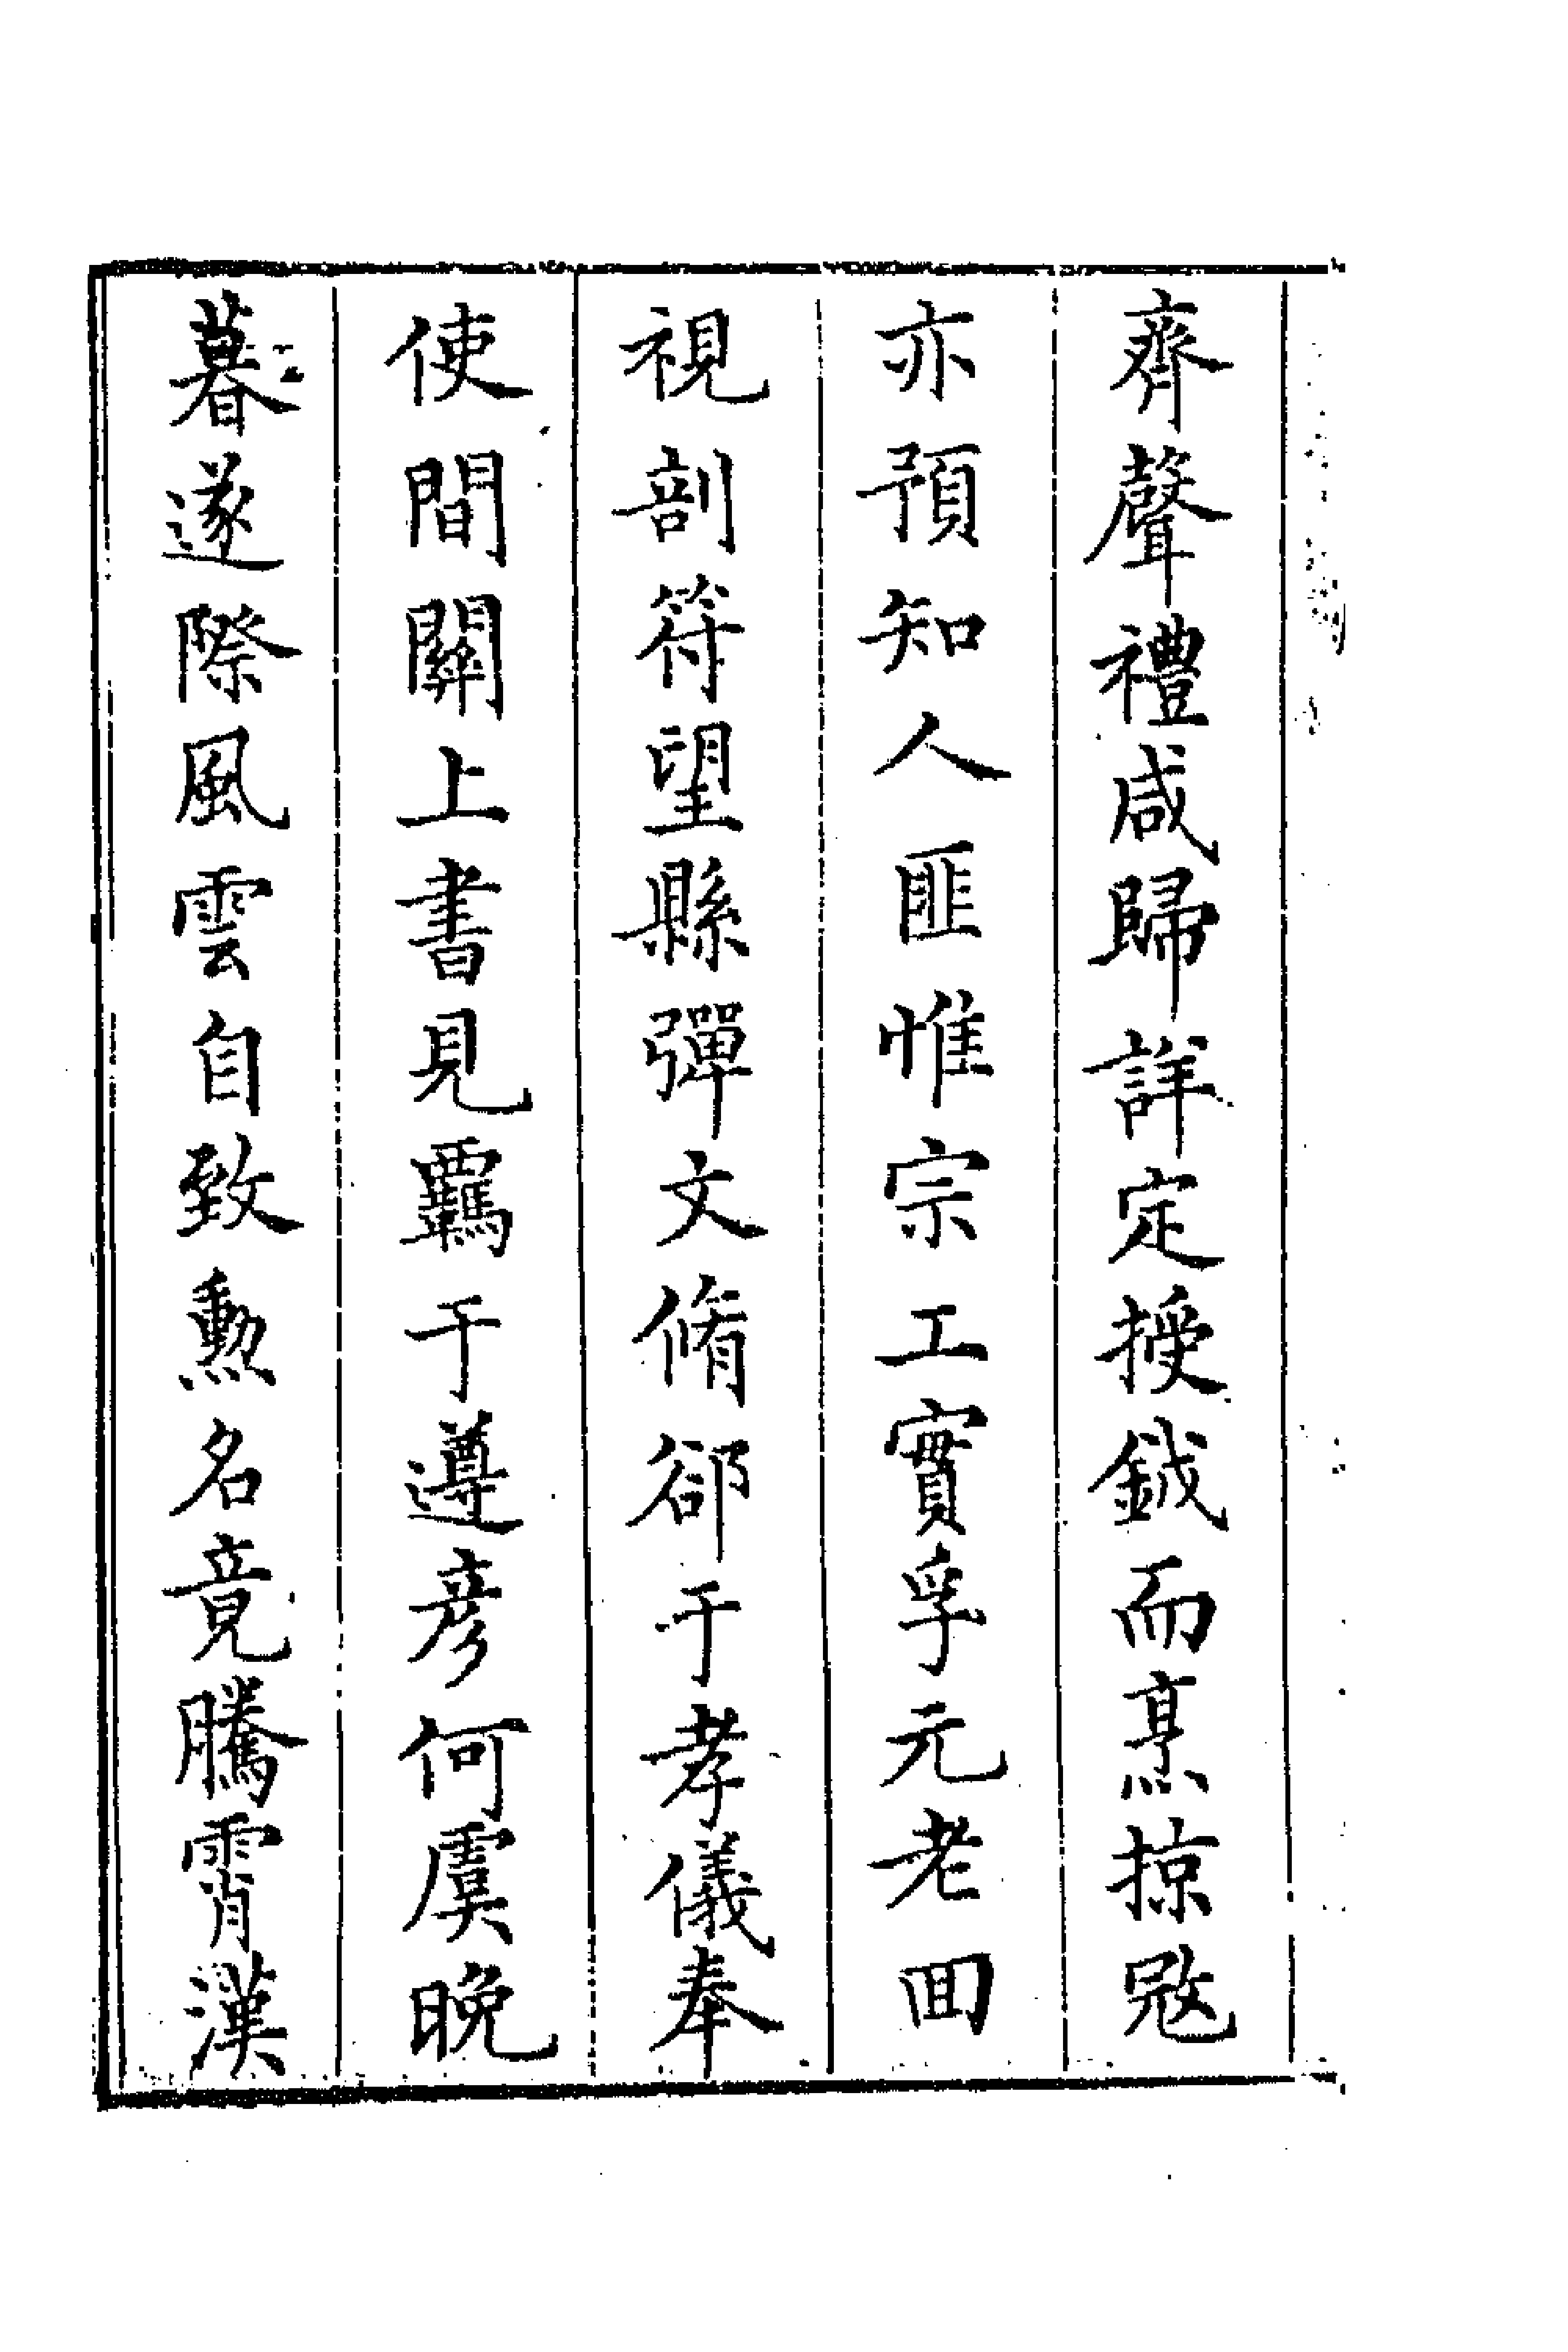 齊聲禮咸歸詳定授鉞而烹掠㓂
亦預知人匪惟宗工實孚元老回
視剖符望縣彈文脩郤于孝儀奉
使間關上書見羈于遵彥何虞晚
暮遂際風雲自致勲名竟騰霄漢